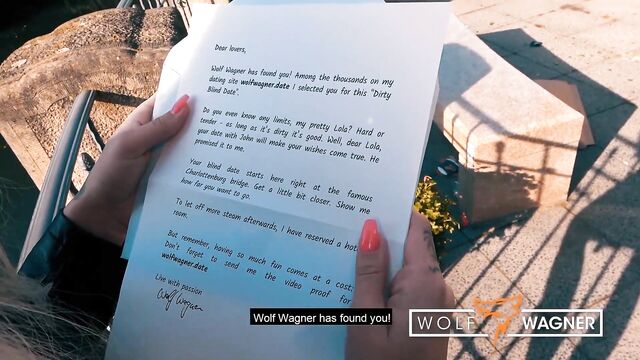 Dear lovers,
Wolf Wagner has found you! Among the thousands on my
dating site wolfwagner.date I selected you for this "Dirty
Blind Date".
Do you even know any limits, my pretty Lola? Hard or
tender - as long as it's dirty it's good. Well, dear Lola,
your date with John will make your wishes come true. He
promised it to me.
Your blind date starts here right at the famous
Charlottenburg bridge. Get a little bit closer. Show me
how far you want to go.
To let off more steam afterwards, I have reserved a hot
room.
But remember, having so much fun comes at a cost;
Don't forget to send me the video proof for
wolfwagner.date
Live with passion
Wolf Wagner
Wolf Wagner has found you!
WOLF WAGNER